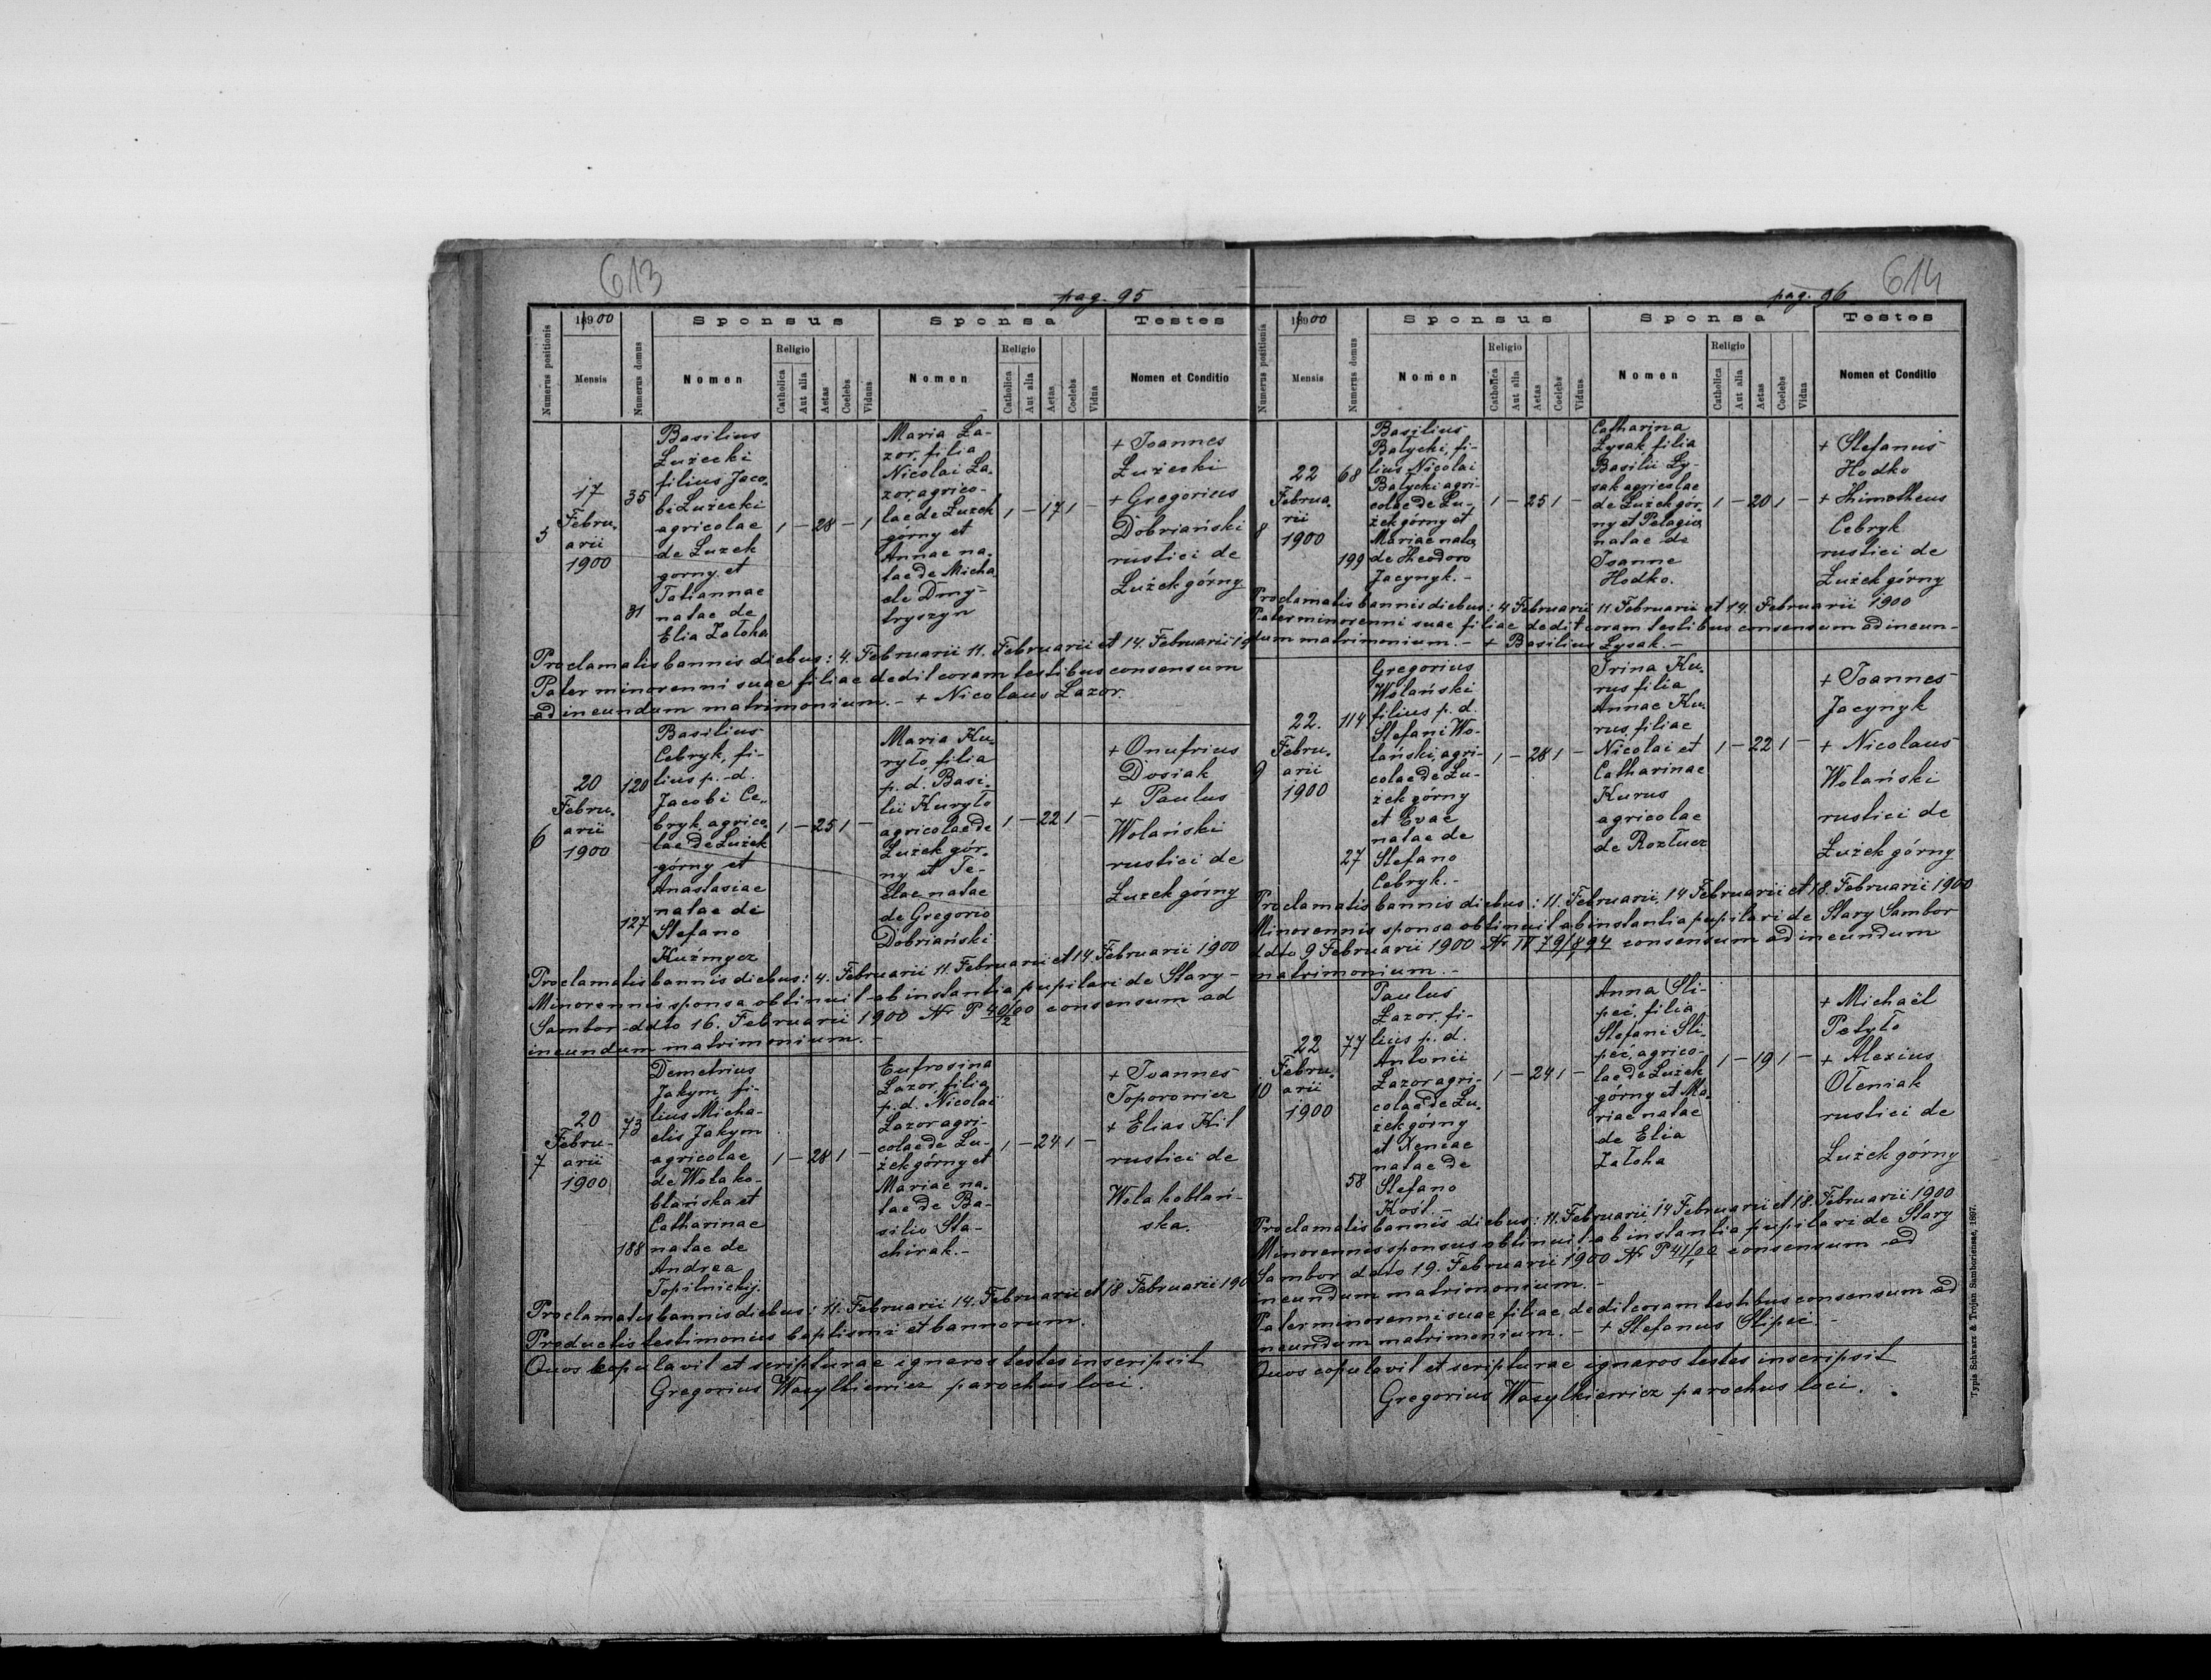 613
pag. 95
Numerus positionis
1900
Mensis
Numerus domus
Sponsus
Nomen
Religio
Catholica
Aut alia
Aetas
Coelebs
Viduus
Sponsa
Nomen
Religio
Catholica
Aut alia
Aetas
Coelebs
Vidua
Testes
Nomen et Conditio
5
17
Febru-
arii
1900
35
81
Basilius
Łużecki
filius Jaco-
bi Łużecki
agricolae
de Łużek
górny et
Tatiannae
natae de
Elia Załoha
1 — 28 — 1
Maria Ła-
zor, filia
Nicolai Ła-
zor agrico-
lae de Łużek
górny et
Annae na-
tae de Micha
ele Dmy-
tryszyn
1 — 17 1 —
+ Joannes
Łużecki
+ Gregorius
Dobriański
rustici de
Łużek górny
Proclamatis bannis diebus: 4. Februarii 11. Februarii et 14. Februarii 19
Pater minorenni suae filiae dedit coram testibus consensum
ad ineundum matrimonium. - + Nicolaus Łazor
6
20
Febru-
arii
1900
120
127
Basilius
Cebryk, fi-
lius p. d.
Jacobi Ce-
bryk, agrico-
lae de Łużek
górny et
Anastasiae
natae de
Stefano
Kuźmycz
1 — 25 1 —
Maria Ku-
ryło, filia
p. d. Basi-
lii Kuryło
agricolae de
Łużek gór-
ny et Te-
clae natae
de Gregorio
Dobriański
1 — 22 1 —
+ Onufrius
Dosiak
+ Paulus
Wolański
rustici de
Łużek górny
Proclamatis bannis diebus: 4. Februarii 11. Februarii et 14. Februarii 1900
Minorennis sponsa obtinuit ab instantia pupilari de Stary-
Sambor ddto 16. Februarii 1900 Nr P 40/00 2 consensum ad
ineundum matrimonium. -
7
20
Febru-
arii
1900
73
188
Demetrius
Jakym, fi-
lius Micha-
elis Jakym
agricolae
de Wola ko-
blańska et
Catharinae
natae de
Andrea
Topilnickij.
1 — 28 1 —
Eufrosina
Łazor, filia
p. d. Nicolai
Łazor agri-
colae de Łu-
żek górny et
Mariae na-
tae de Ba-
silio Sta-
chirak. -
1 — 24 1 —
+ Joannes
Toporowicz
+ Elias Kil
rustici de
Wola koblań-
ska.
Proclamatis bannis diebus: 11. Februarii 14. Februarii et 18 Februarii 190
Productis testimoniis baptismi et bannorum.
Quos copulavit et scripturae ignaros testes inscripsit
Gregorius Wasylkiewicz parochus loci.
614
pag. 96
Numerus positionis
1900
Mensis
Numerus domus
Sponsus
Nomen
Religio
Catholica
Aut alia
Aetas
Coelebs
Viduus
Sponsa
Nomen
Religio
Catholica
Aut alia
Aetas
Coelebs
Vidua
Testes
Nomen et Conditio
8
22
Februa-
rii
1900
68
199
Basilius
Bałycki, fi-
lius Nicolai
Bałycki agri-
colae de Łu-
żek górny et
Mariae natae
de Theodoro
Jacynyk. -
1 — 25 1 —
Catharina
Łysak, filia
Basilii Ły-
sak agricolae
de Łużek gór-
ny et Pelagiae
natae de
Joanne
Hodko.
1 — 20 1 —
+ Stefanus
Hodko
+ Thimotheus
Cebryk
rustici de
Łużek górny
Proclamatis bannis diebus: 4 Februarii 11. Februarii et 14. Februarii 1900
Pater minorenni suae filiae dedit coram testibus consensum ad ineun-
dum matrimonium. - + Basilius Łysak. -
9
22.
Febru-
arii
1900
114
27
Gregorius
Wolański
filius p. d.
Stefani Wo-
lański, agri-
colae de Łu-
żek górny
et Evae
natae de
Stefano
Cebryk. -
1 — 28 1 —
Irina Ku-
rus filia
Annae Ku-
rus, filiae
Nicolai et
Catharinae
Kurus
agricolae
de Rozłucz
1 — 22 1 —
+ Joannes
Jacynyk
+ Nicolaus
Wolański
rustici de
Łużek górny
Proclamatis bannis diebus: 11. Februarii, 14 Februarii et 18. Februarii 1900
Minorennis sponsa obtinuit ab instantia pupilari de Stary Sambor
ddto 9 Februarii 1900 Nr IV 79/894 consensum ad ineundum
matrimonium. -
10
22
Febru-
arii
1900
77
58
Paulus
Łazor, fi-
lius p. d.
Antonii
Łazor agri-
colae de Łu-
żek górny
et Xeniae
natae de
Stefano
Kost. -
1 — 24 1 —
Anna Sli-
peć, filia
Stefani Sli-
peć, agrico-
lae de Łużek
górny et Ma-
riae natae
de Elia
Załoha
1 — 19 1 —
+ Michaël
Petyło
+ Alexius
Oleniak
rustici de
Łużek górny
Proclamatis bannis diebus: 11. Februarii, 14 Februarii et 18. Februarii 1900
Minorennis sponsus obtinuit ab instantia pupilari de Stary
Sambor ddto 19. Februarii 1900 Nr P 41/00 1 consensum ad
ineundum matrimonium. -
Pater minorenni suae filiae dedit coram testibus consensum ad
ineundum matrimonium. - + Stefanus Slipeć -
Quos copulavit et scripturae ignaros testes inscripsit
Gregorius Wasylkiewicz parochus loci.
Typis Schwarz & Trojan Samboriensae, 1897.